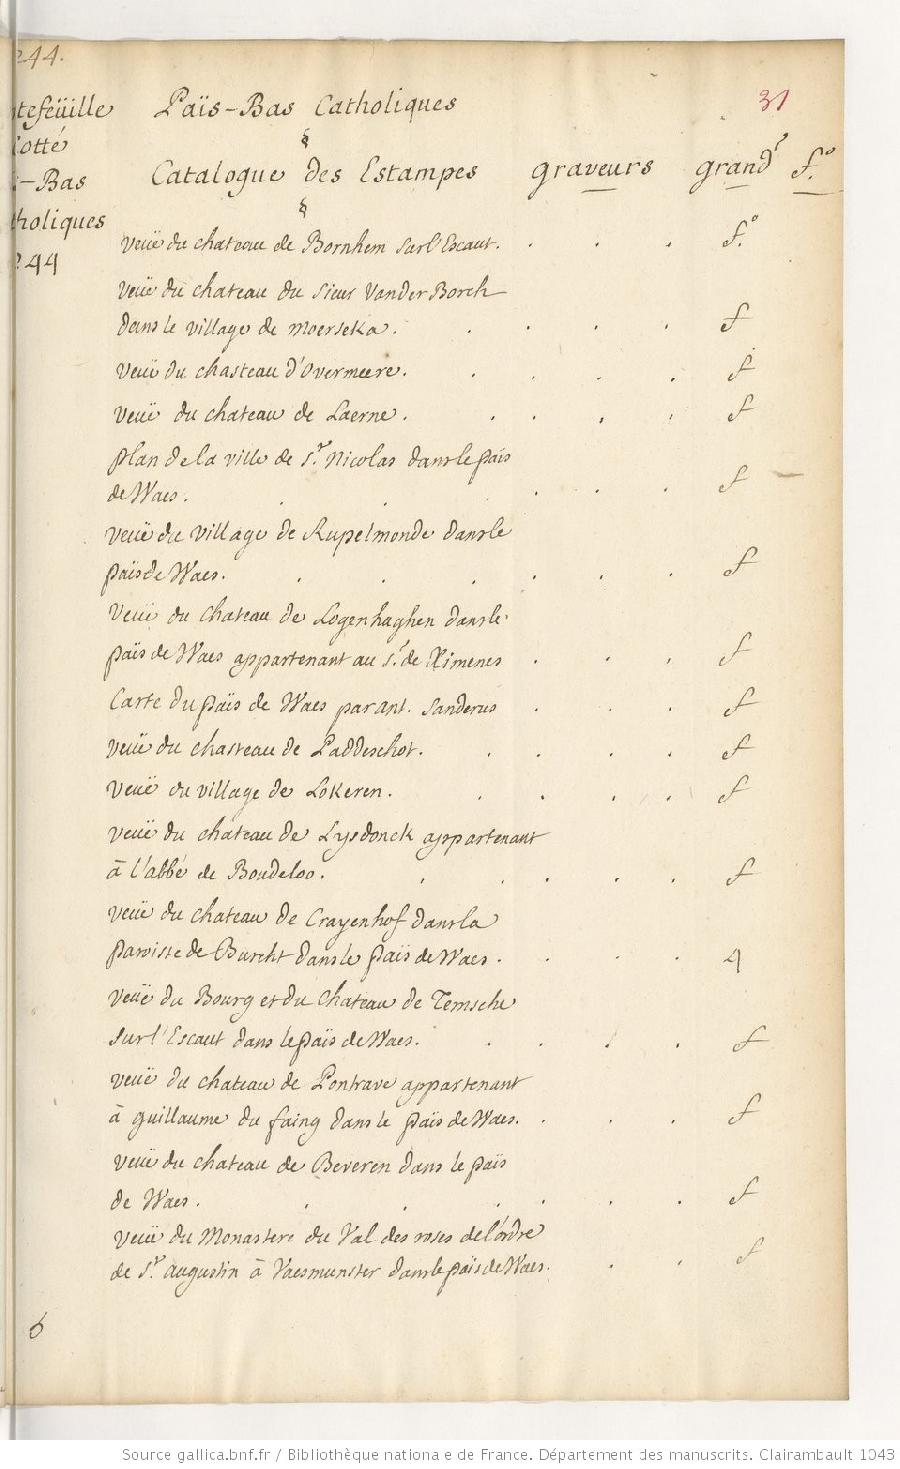 244.
31
tefeüille
Cotté
-Bas
tholiques
244
Païs-Bas Catholiques
Catalogue des Estampes graveurs grandr f.o
veüe du chateau de Bornhem sur l'Escaut. f.o
veüe du chateau du sieur Vander Borch
dans le village de moerseka. f
veüe du chasteau d'Overmeere. f
veüe du chateau de Laerne. f
plan de la ville de St. Nicolas dans le païs
de Waes. f
veüe du village de Rupelmonde dans le
païs de Waes. f
veüe du chateau de Logenhaghen dans le
païs de Waes appartenant au Sr. de Ximenes f
Carte du païs de Waes par ant. Sanderus f
veüe du chasteau de Paddeschot. f
veüe du village de Lokeren. f
veüe du chateau de Lysdonck appartenant
à l'abbé de Boudeloo. f
veüe du chateau de Crayenhof dans la
paroisse de Burcht dans le païs de Waes. 4
veüe du Bourg et du chateau de Temsche
sur l'Escaut dans le païs de Waes. f
veüe du chateau de Pontrave appartenant
à guillaume du faing dans le païs de Waes. f
veüe du chateau de Beveren dans le païs
de Waes. f
veüe du Monastere du Val des roses de l'ordre
de St. augustin à Vaesmunster dans le païs de Waes. f
6
Source gallica.bnf.fr / Bibliothèque nationale de France. Département des manuscrits. Clairambault 1043